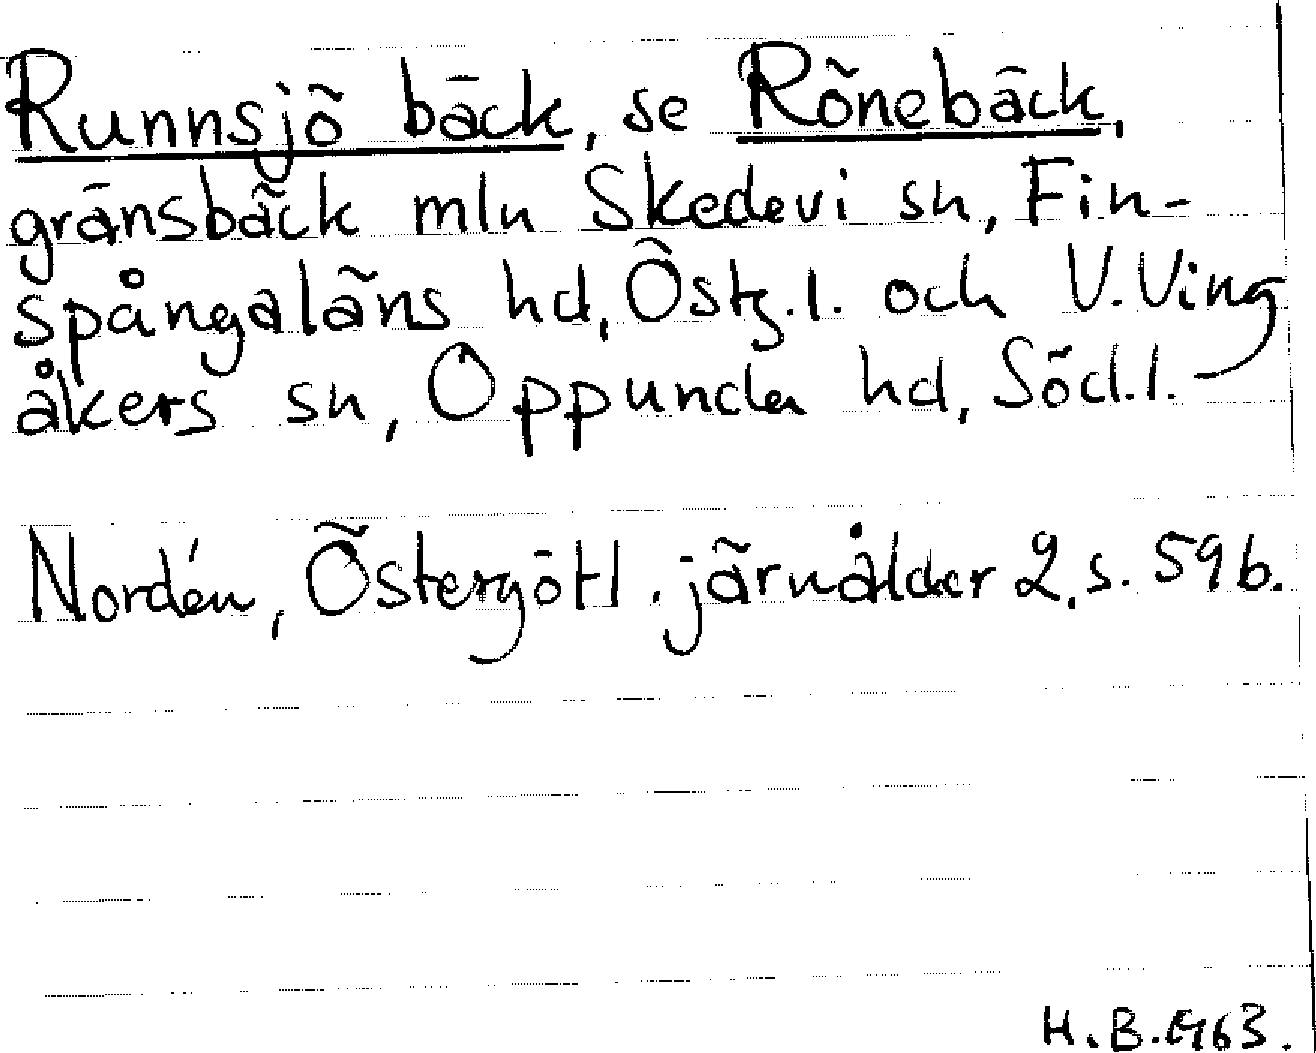 Runnsjö bäck, se Rönebäck,
gränsbäck mln Skedevi sn, Fin-
spångaläns hd, Östg.l. och V.Ving
åkers sn, Oppunda hd, Söd.l.
Nordén, Östergötl. järnålder 2, s. 59 b.
H.B. 1963.